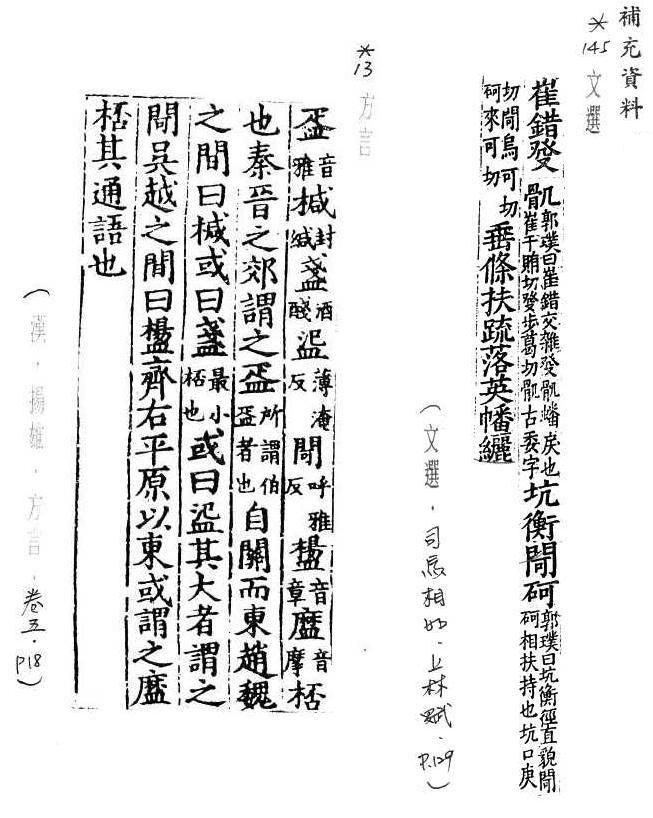 補充資料
*145 文選
崔錯發骫郭璞曰崔錯交雜發骫蟠戾也崔千賄切發步葛切骫古委字坑衡閜砢郭璞曰坑衡徑直貌閜砢相扶持也坑口庚
切閜烏可切砢來可切垂條扶疏落英幡纚
(文選．司馬相如．上林賦．P.129)
*13 方言
音雅椷封緘盞酒醆薄淹反閜呼雅反音章音摩桮
也秦晉之郊謂之所謂伯者也自關而東趙魏
之間曰椷或曰盞最小桮也或曰其大者謂之
閜吳越之間曰齊右平原以東或謂之
桮其通語也
(漢．揚雄．方言．卷五．P18)